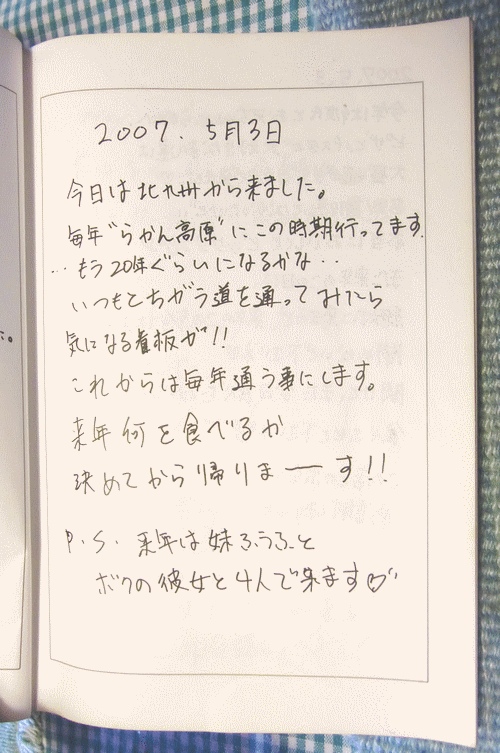 2007. 5月3日
今日は北九州から来ました。
毎年"らかん高原"にこの時期行ってます.
…もう20年ぐらいになるかな‥
いつもとちがう道を通ってみたら
気になる看板が!!
これからは毎年通う事にします。
来年何を食べるか
決めてから帰りまーす!!
P.S. 来年は妹ふうふと
ボクの彼女と4人で来ます♡